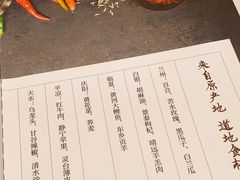 来自原产地 道地食材
兰州：百合、苦水玫瑰、黑瓜子、白兰瓜
白银：胡麻油、景泰枸杞、靖远羊羔肉
临夏：黄河大鲤鱼、东乡贡羊
庆阳：黄花菜、荞麦
平凉：红牛肉、静宁苹果、灵台薄
天水：乌龙头、甘谷辣椒、清水